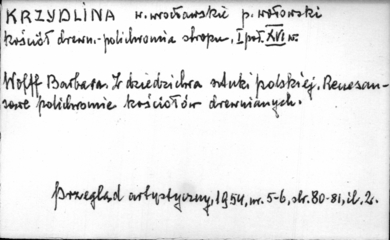 KRZYDLINA w. wrocławskie p. wołowski
kościół drewn.-polichromia stropu. I poł. XVI w.
Wolff Barbara. Z dziedzictwa sztuki polskiej. Renesan-
sowe polichromie kościołów drewnianych.
Przegląd artystyczny, 1954, nr. 5-6, str. 80-81, il. 2.